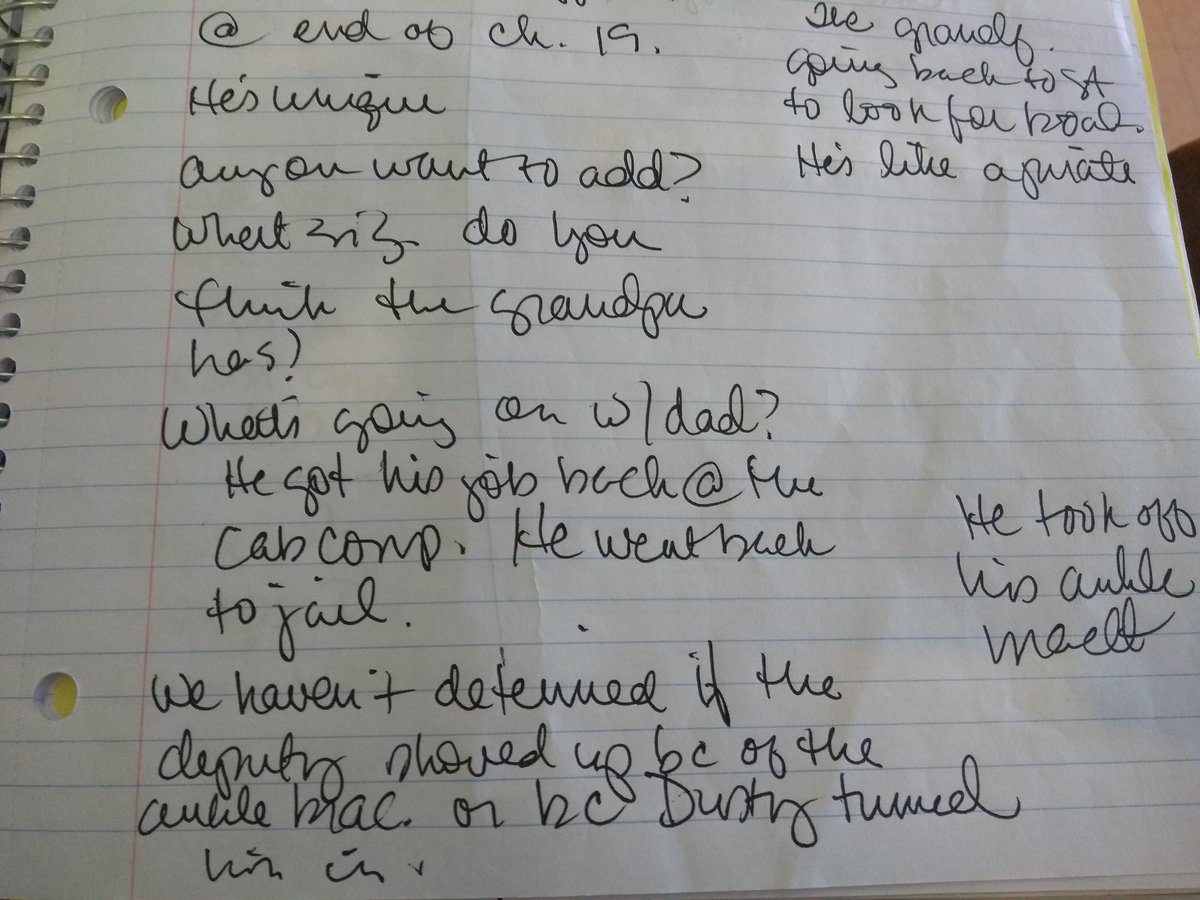 @ end of ch. 19.
He's unique
anyon want to add?
What do you
think the grandpa
has?
What's going on w/dad?
He got his job back @ the
cab comp. He went back
to jail.
We haven't determed if the
deputy showed up bc of the
ankle brac. or bc Dusty turned
him in.
The grandf.
going back to
to look for boat.
He's like a pirate
He took off
his ankle